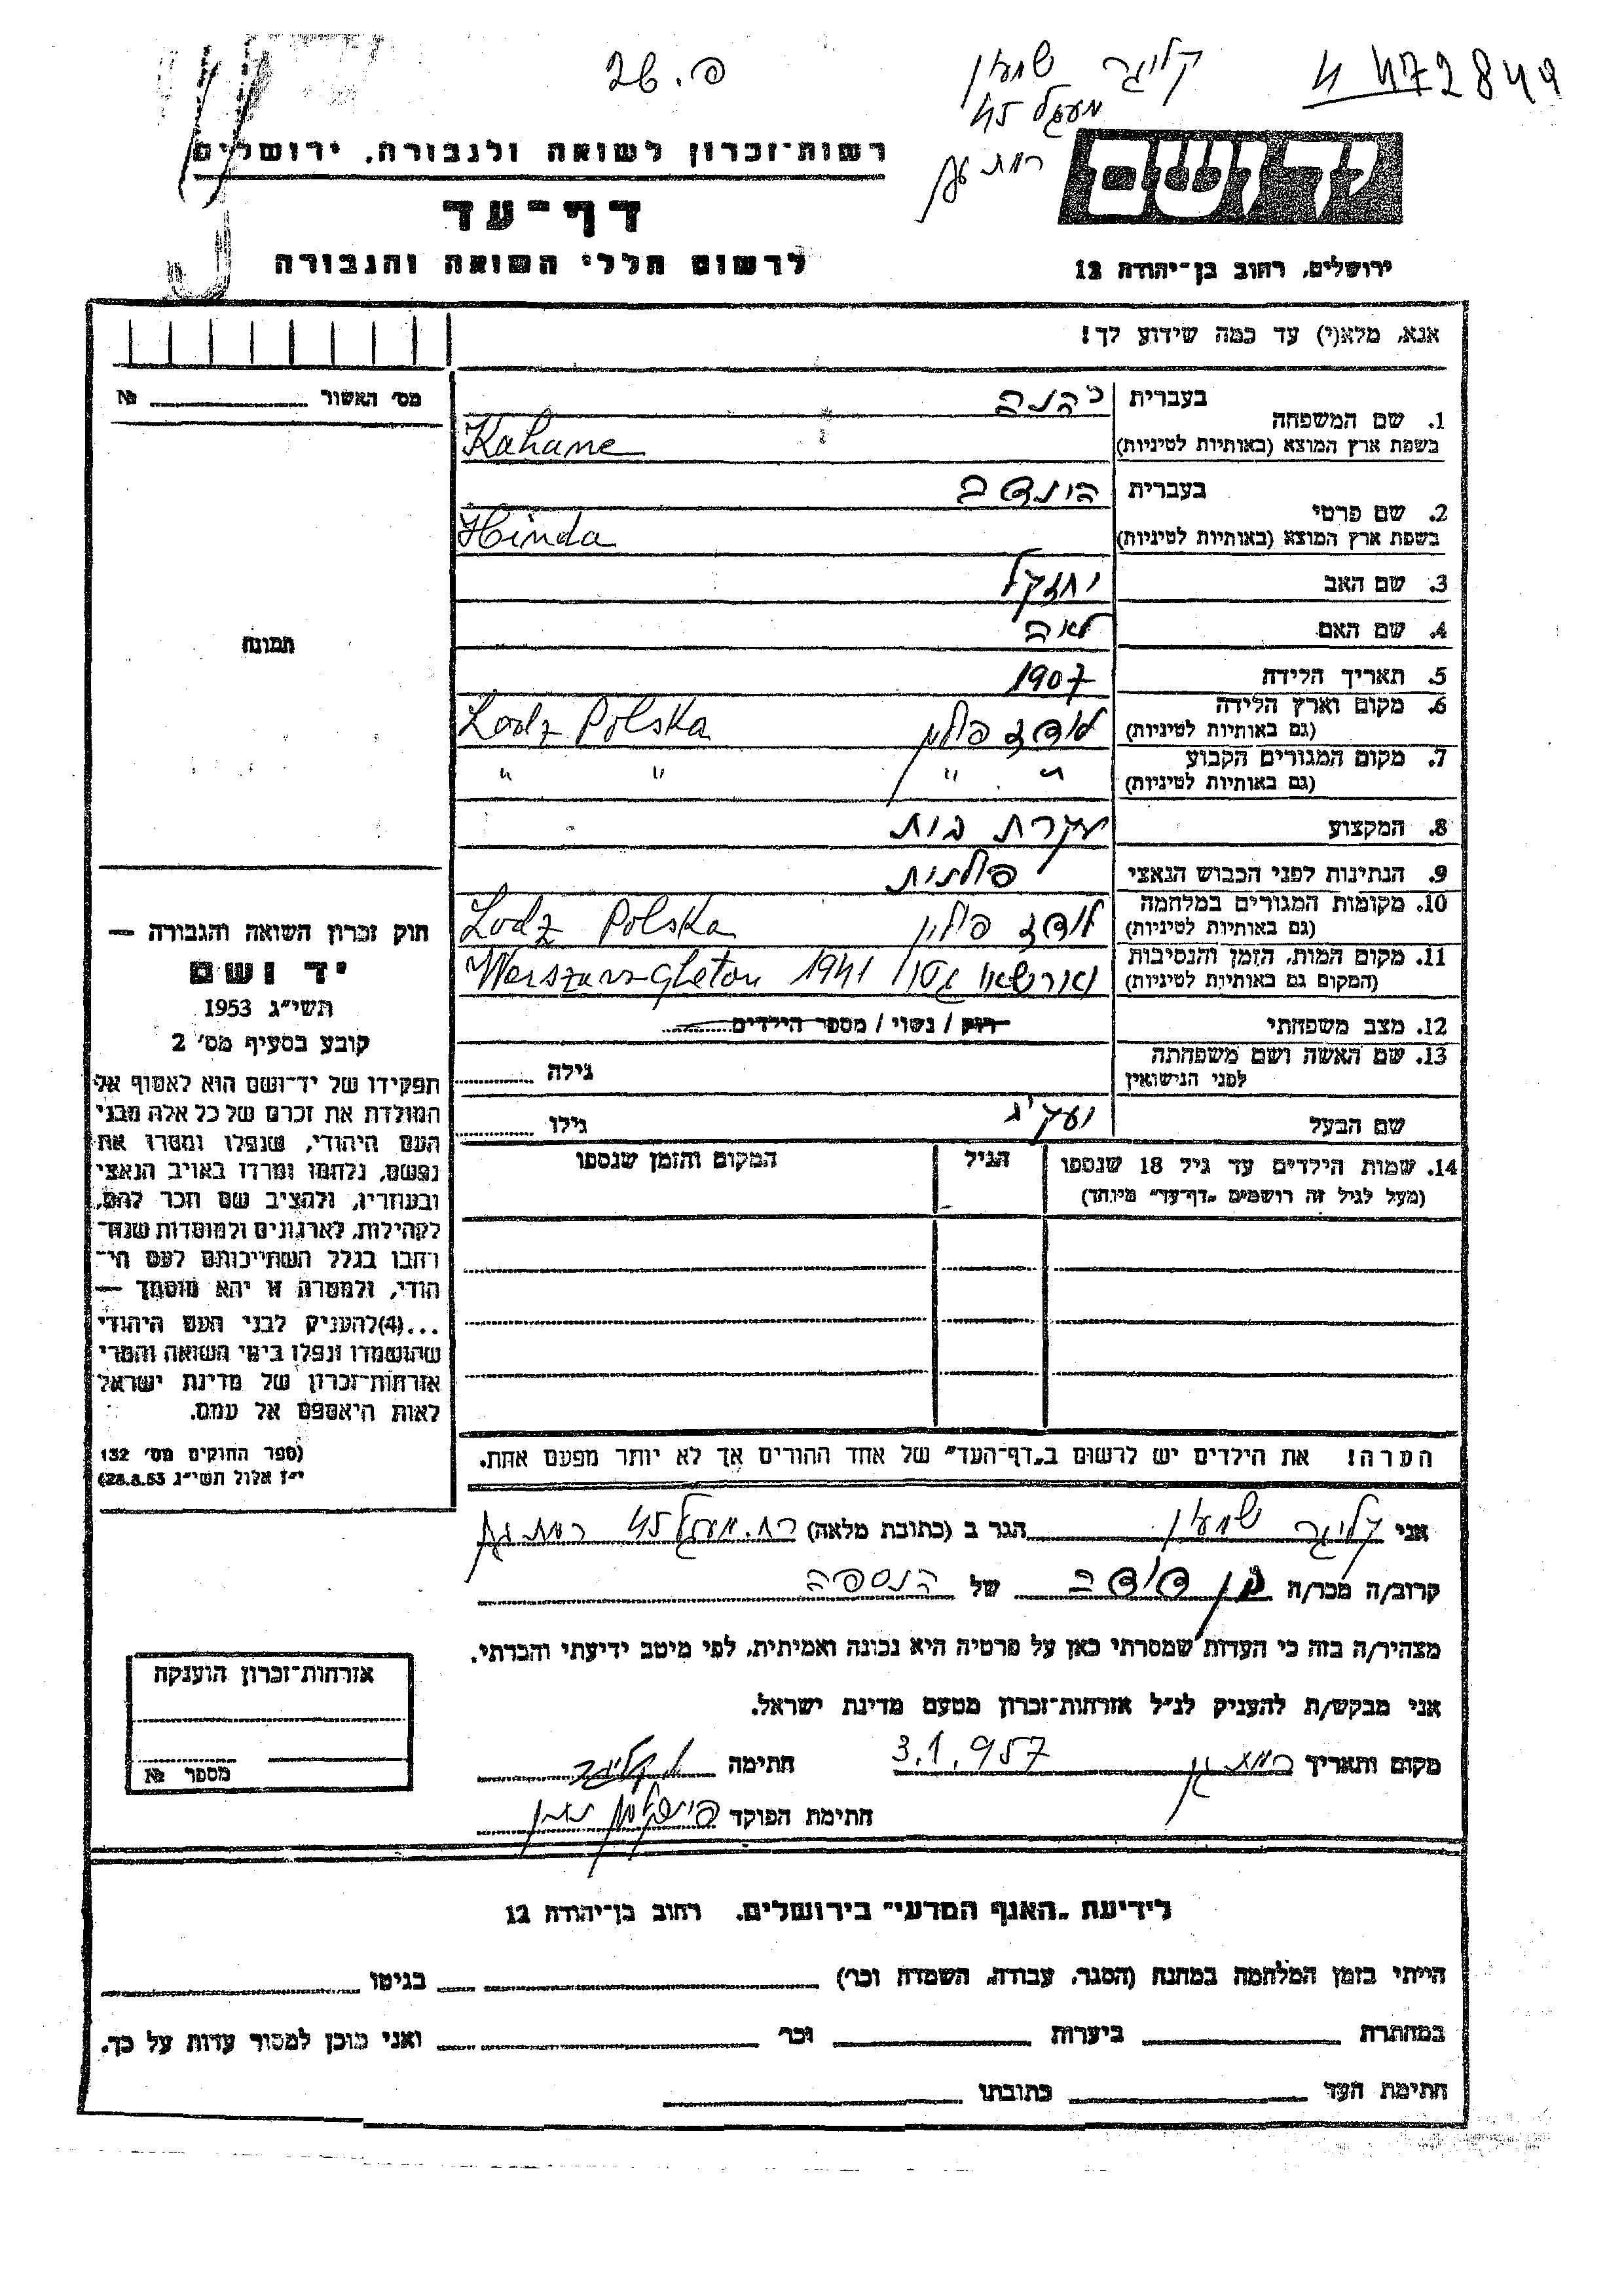 פ. 26
קליגר שמעון
472849
מעגל 45
רמת גן
רשות־זכרון לשואה ולגבורה, ירושלים
דף־עד
לרשום חללי השואה והגבורה
ידושם
ירושלים, רחוב בן־יהודה 12
אנא, מלא(י) עד כמה שידוע לך!
מס׳ האשור № 
1. שם המשפחה
בעברית כהנה
בשפת ארץ המוצא (באותיות לטיניות) Kahane
2. שם פרטי
בעברית הינדה
בשפת ארץ המוצא (באותיות לטיניות) Hinda
3. שם האב יחזקל
4. שם האם לאה
תמונה
5. תאריך הלידה 1907
6. מקום וארץ הלידה
(גם באותיות לטיניות) לודז פולין Lodz Polska
7. מקום המגורים הקבוע
(גם באותיות לטיניות) " " " "
8. המקצוע עקרת בית
9. הנתינות לפני הכבוש הנאצי פולנית
10. מקומות המגורים במלחמה
(גם באותיות לטיניות) לודז פולין Lodz Polska
11. מקום המות, הזמן והנסיבות
(המקום גם באותיות לטיניות) וארשאו גטו 1941
12. מצב משפחתי רווק / נשוי / מספר הילדים
13. שם האשה ושם משפחתה
לפני הנישואין
גילה
שם הבעל
גילו
14. שמות הילדים עד גיל 18 שנספו
(מעל לגיל זה רושמים „דף־עד״ מיוחד)
הגיל
המקום והזמן שנספו
הערה! את הילדים יש לרשום ב„דף־העד״ של אחד ההורים אך לא יותר מפעם אחת.
חוק זכרון השואה והגבורה —
יד ושם
תשי״ג 1953
קובע בסעיף מס׳ 2
תפקידו של יד־ושם הוא לאסוף אל
המולדת את זכרם של כל אלה מבני
העם היהודי, שנפלו ומסרו את
נפשם, נלחמו ומרדו באויב הנאצי
ובעוזריו, ולהציב שם וזכר להם,
לקהילות, לארגונים ולמוסדות שנח־
רבו בגלל השתייכותם לעם הי־
הודי, ולמטרה זו יהא מוסמך —
...(4)להעניק לבני העם היהודי
שהושמדו ונפלו בימי השואה והמרי
אזרחות־זכרון של מדינת ישראל
לאות היאספם אל עמם.
(ספר החוקים מס׳ 132
י״ז אלול תשי״ג 28.8.53)
אני קליגר שמעון הגר ב (כתובת מלאה) רח. מעגל 45 רמת גן
קרוב/ה מכר/ה בן דודה של הנספה
מצהיר/ה בזה כי העדות שמסרתי כאן על פרטיה היא נכונה ואמיתית, לפי מיטב ידיעתי והכרתי.
אני מבקש/ת להעניק לנ״ל אזרחות־זכרון מטעם מדינת ישראל.
מקום ותאריך רמת גן 3.1.957 חתימה קליגר
חתימת הפוקד
אזרחות־זכרון הוענקה
מספר №
לידיעת „האגף המדעי״ בירושלים, רחוב בן־יהודה 12
הייתי בזמן המלחמה במחנה (הסגר, עבודה, השמדה וכר׳) בגיטו
במחתרת ביערות וכר׳ ואני מוכן למסור עדות על כך.
חתימת העד כתובתו